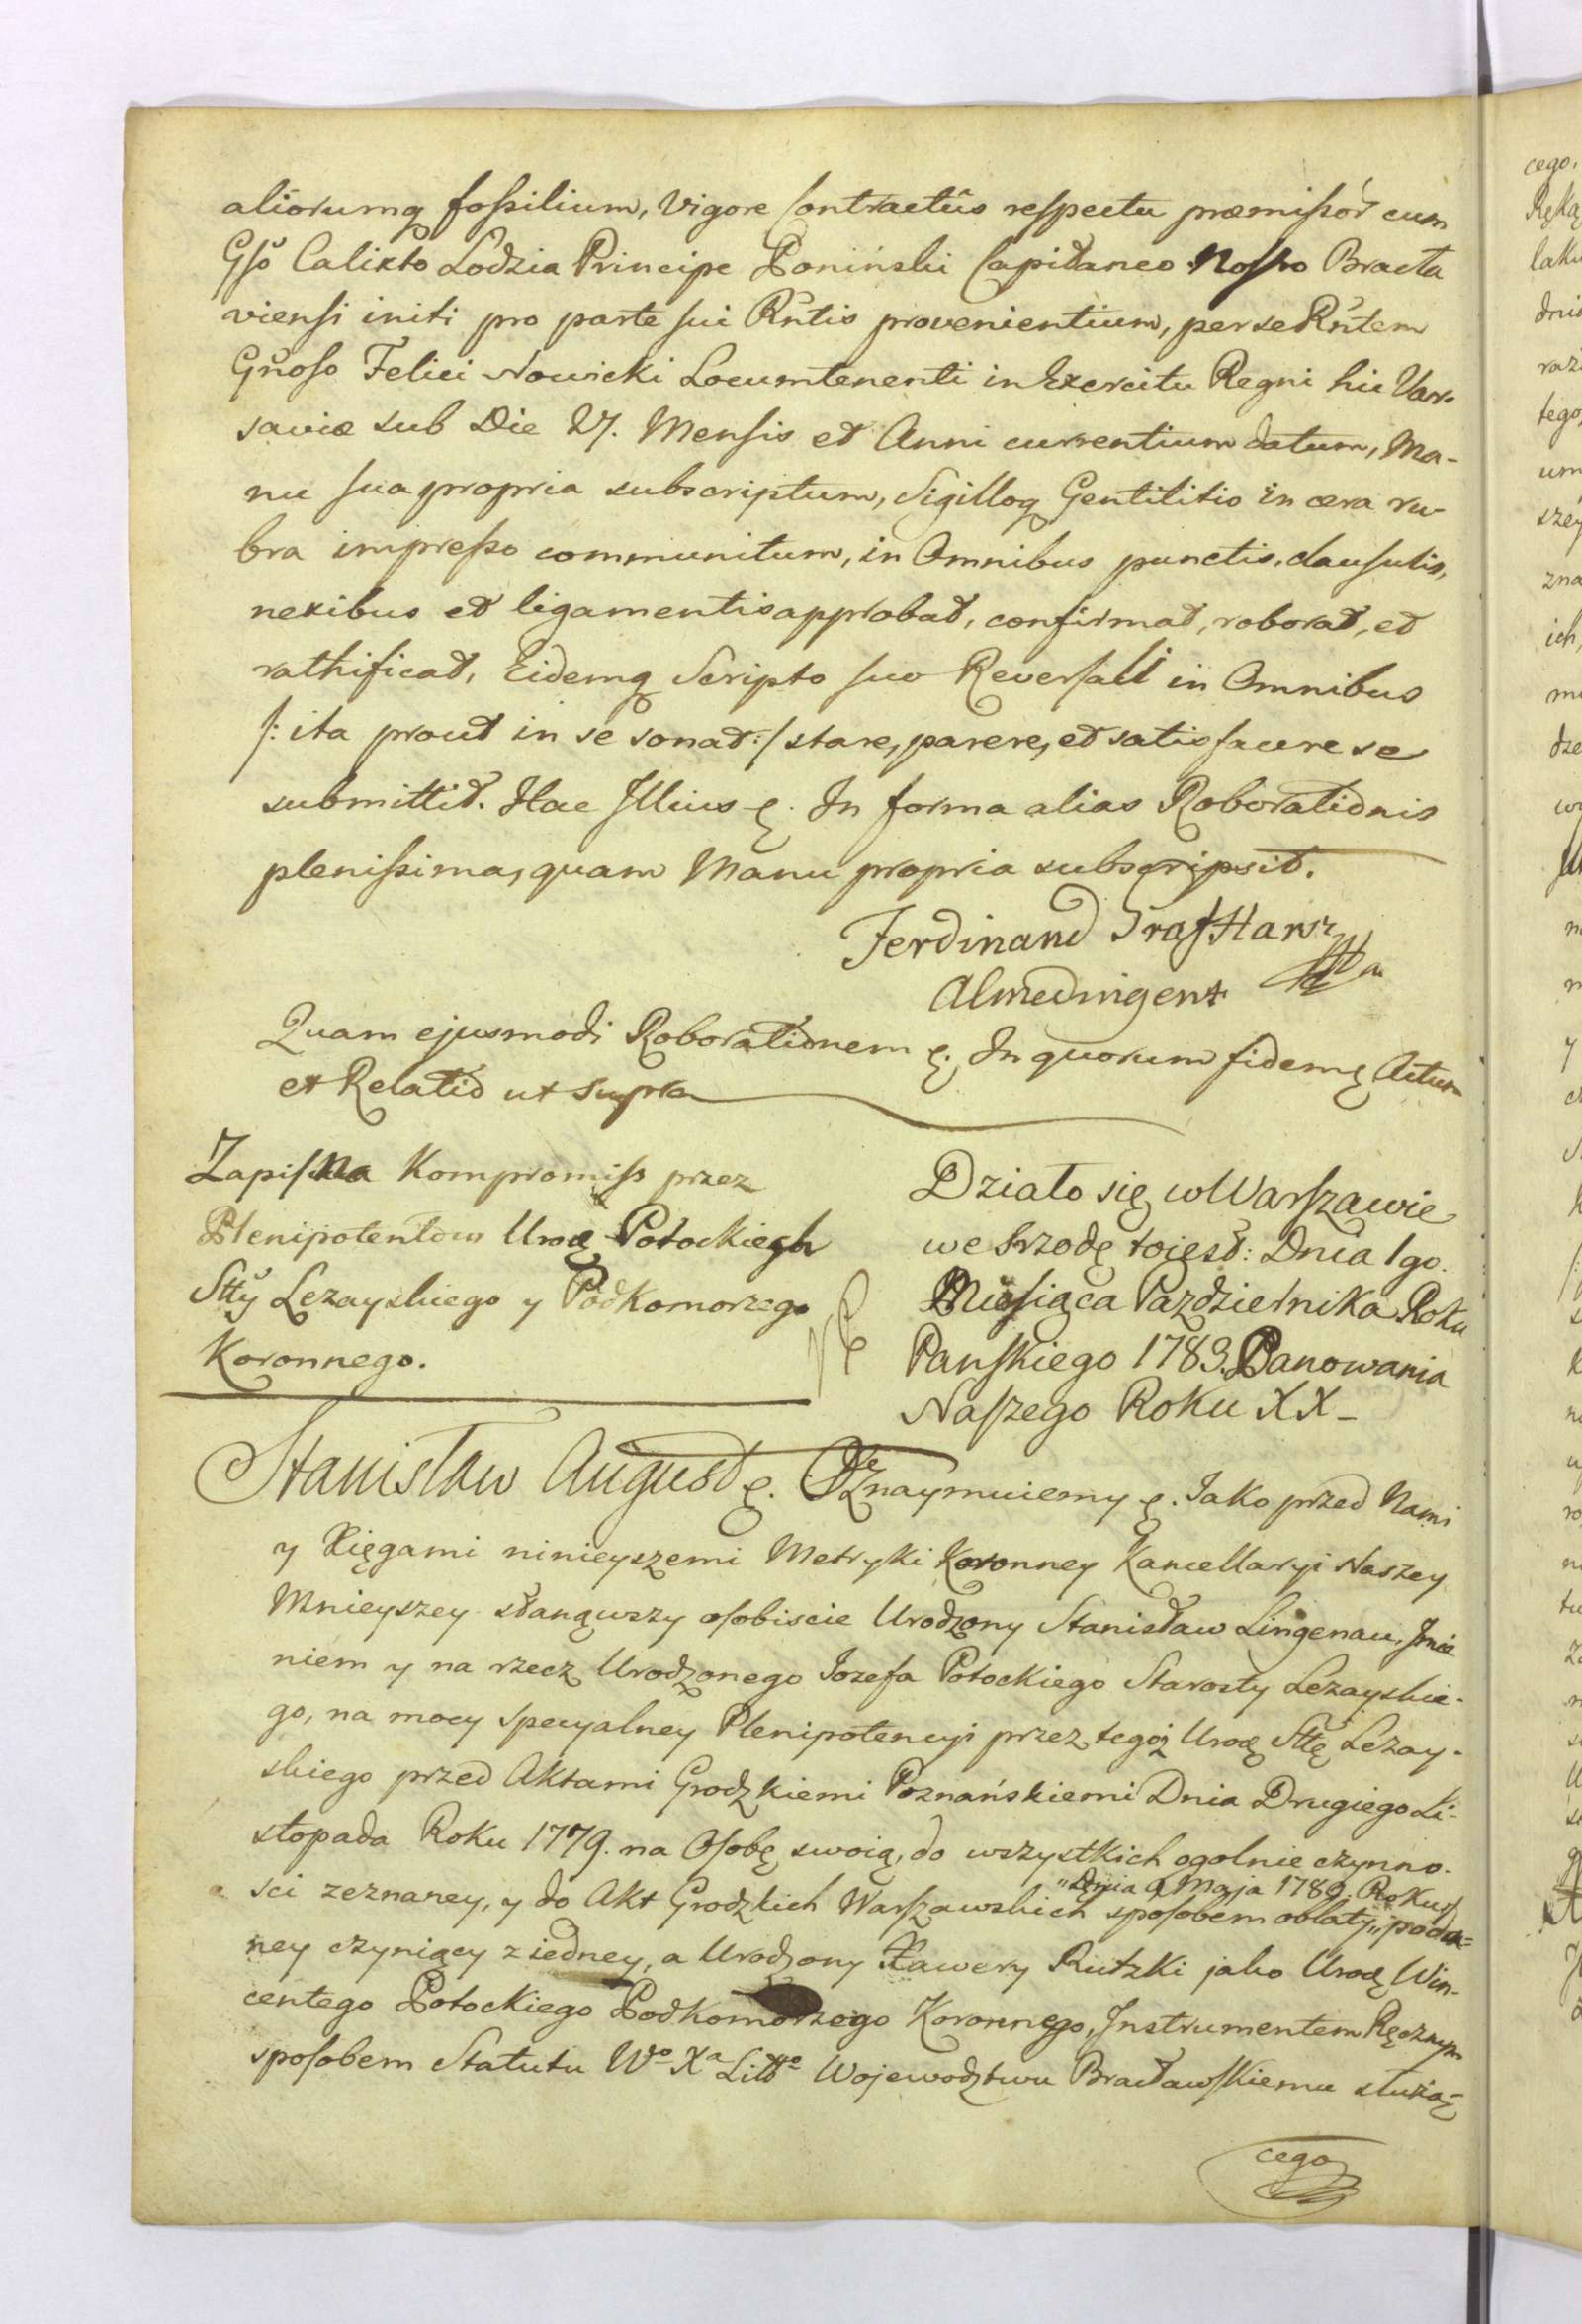 aliorumq fossilium, Vigore Contractûs respectu præmissór cum
Gső Calixto Lodzia Principe Poniński Capitaneo Nostro Bracła
viensi initi pro parte sui Rńtis provenientium, per se Rńtem
Gńoso Felici Nowicki Locumtenenti in Exercitu Regni hic Var-
saviæ sub Die 27. Mensis et Anni currentium datum, Ma-
nu sua propria subscriptum, Sigilloq Gentilitio in cera ru-
bra impresso communitum, in Omnibus punctis, clausulis,
nexibus et ligamentis approbat, confirmat, roborat, et
rathificat, Eidemq Scripto suo Reversali in Omnibus
/: ita prout in se sonat :/ stare, parere, et satisfacere se
submittit. Hac Illius ę. In forma alias Roborationis
plenissima, quam Manu propria subscripsit.
Ferdinand Graf
Quam ejusmodi Roborationem ę. In quorum fidemę Actum
et Relatio ut supra
Zapis Na Kompromiss przez
Plenipotentow Urodę Potockiego
Stty Lezayskiego y Podkomorzego
Koronnego.
Działo się w Warszawie
we Srzodę toiest: Dnia 1go.
Miesiąca Pazdziernika Roku
Panskiego 1783. Panowania
Naszego Roku XX_
Stanisław August ę. Oznaymuiemy ę. Jako przed Nami
y Xięgami ninieyszemi Metryki Koronney Kancellaryi Naszey
Mnieyszey stanąwszy osobiscie Urodzony Stanisław Lingenau, Jmie
niem y na rzecz Urodzonego Jozefa Potockiego Starosty Lezayskie-
go, na mocy specyalney Plenipotencyi przez tegoż Urodę Sttę Lezay-
skiego przed Aktami Grodzkiemi Poznańskiemi Dnia Drugiego Li-
stopada Roku 1779. na Osobę swoią, do wszystkich ogolnie czynno-
"Dnia 9 Maja 1780. Roku"
sci zeznaney, y do Akt Grodzkich Warszawskich sposobem oblaty " poda=
ney czyniący z iedney, a Urodzony Xawery Rutzki jako Urodę Win-
centego Potockiego Podkomorzego Koronnego, Instrumentem Ręcznym
sposobem Statutu Wo Xa Litto Wojewodztwu Bracławskiemu służą-
cego